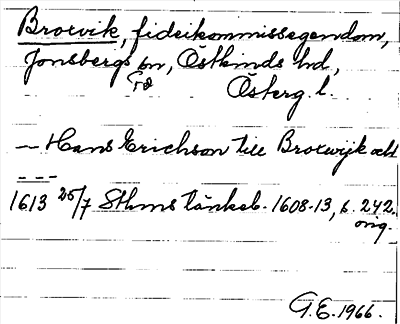 Brorvik, fideikommissegendom,
Jonsbergs sn, Östkinds hd,
Östérg. l.
— Hans Erichson till Brorwijk och
---
1613 25/7 Sthms tänkeb. 1608-13, s. 242.
orig.
G.E. 1966.